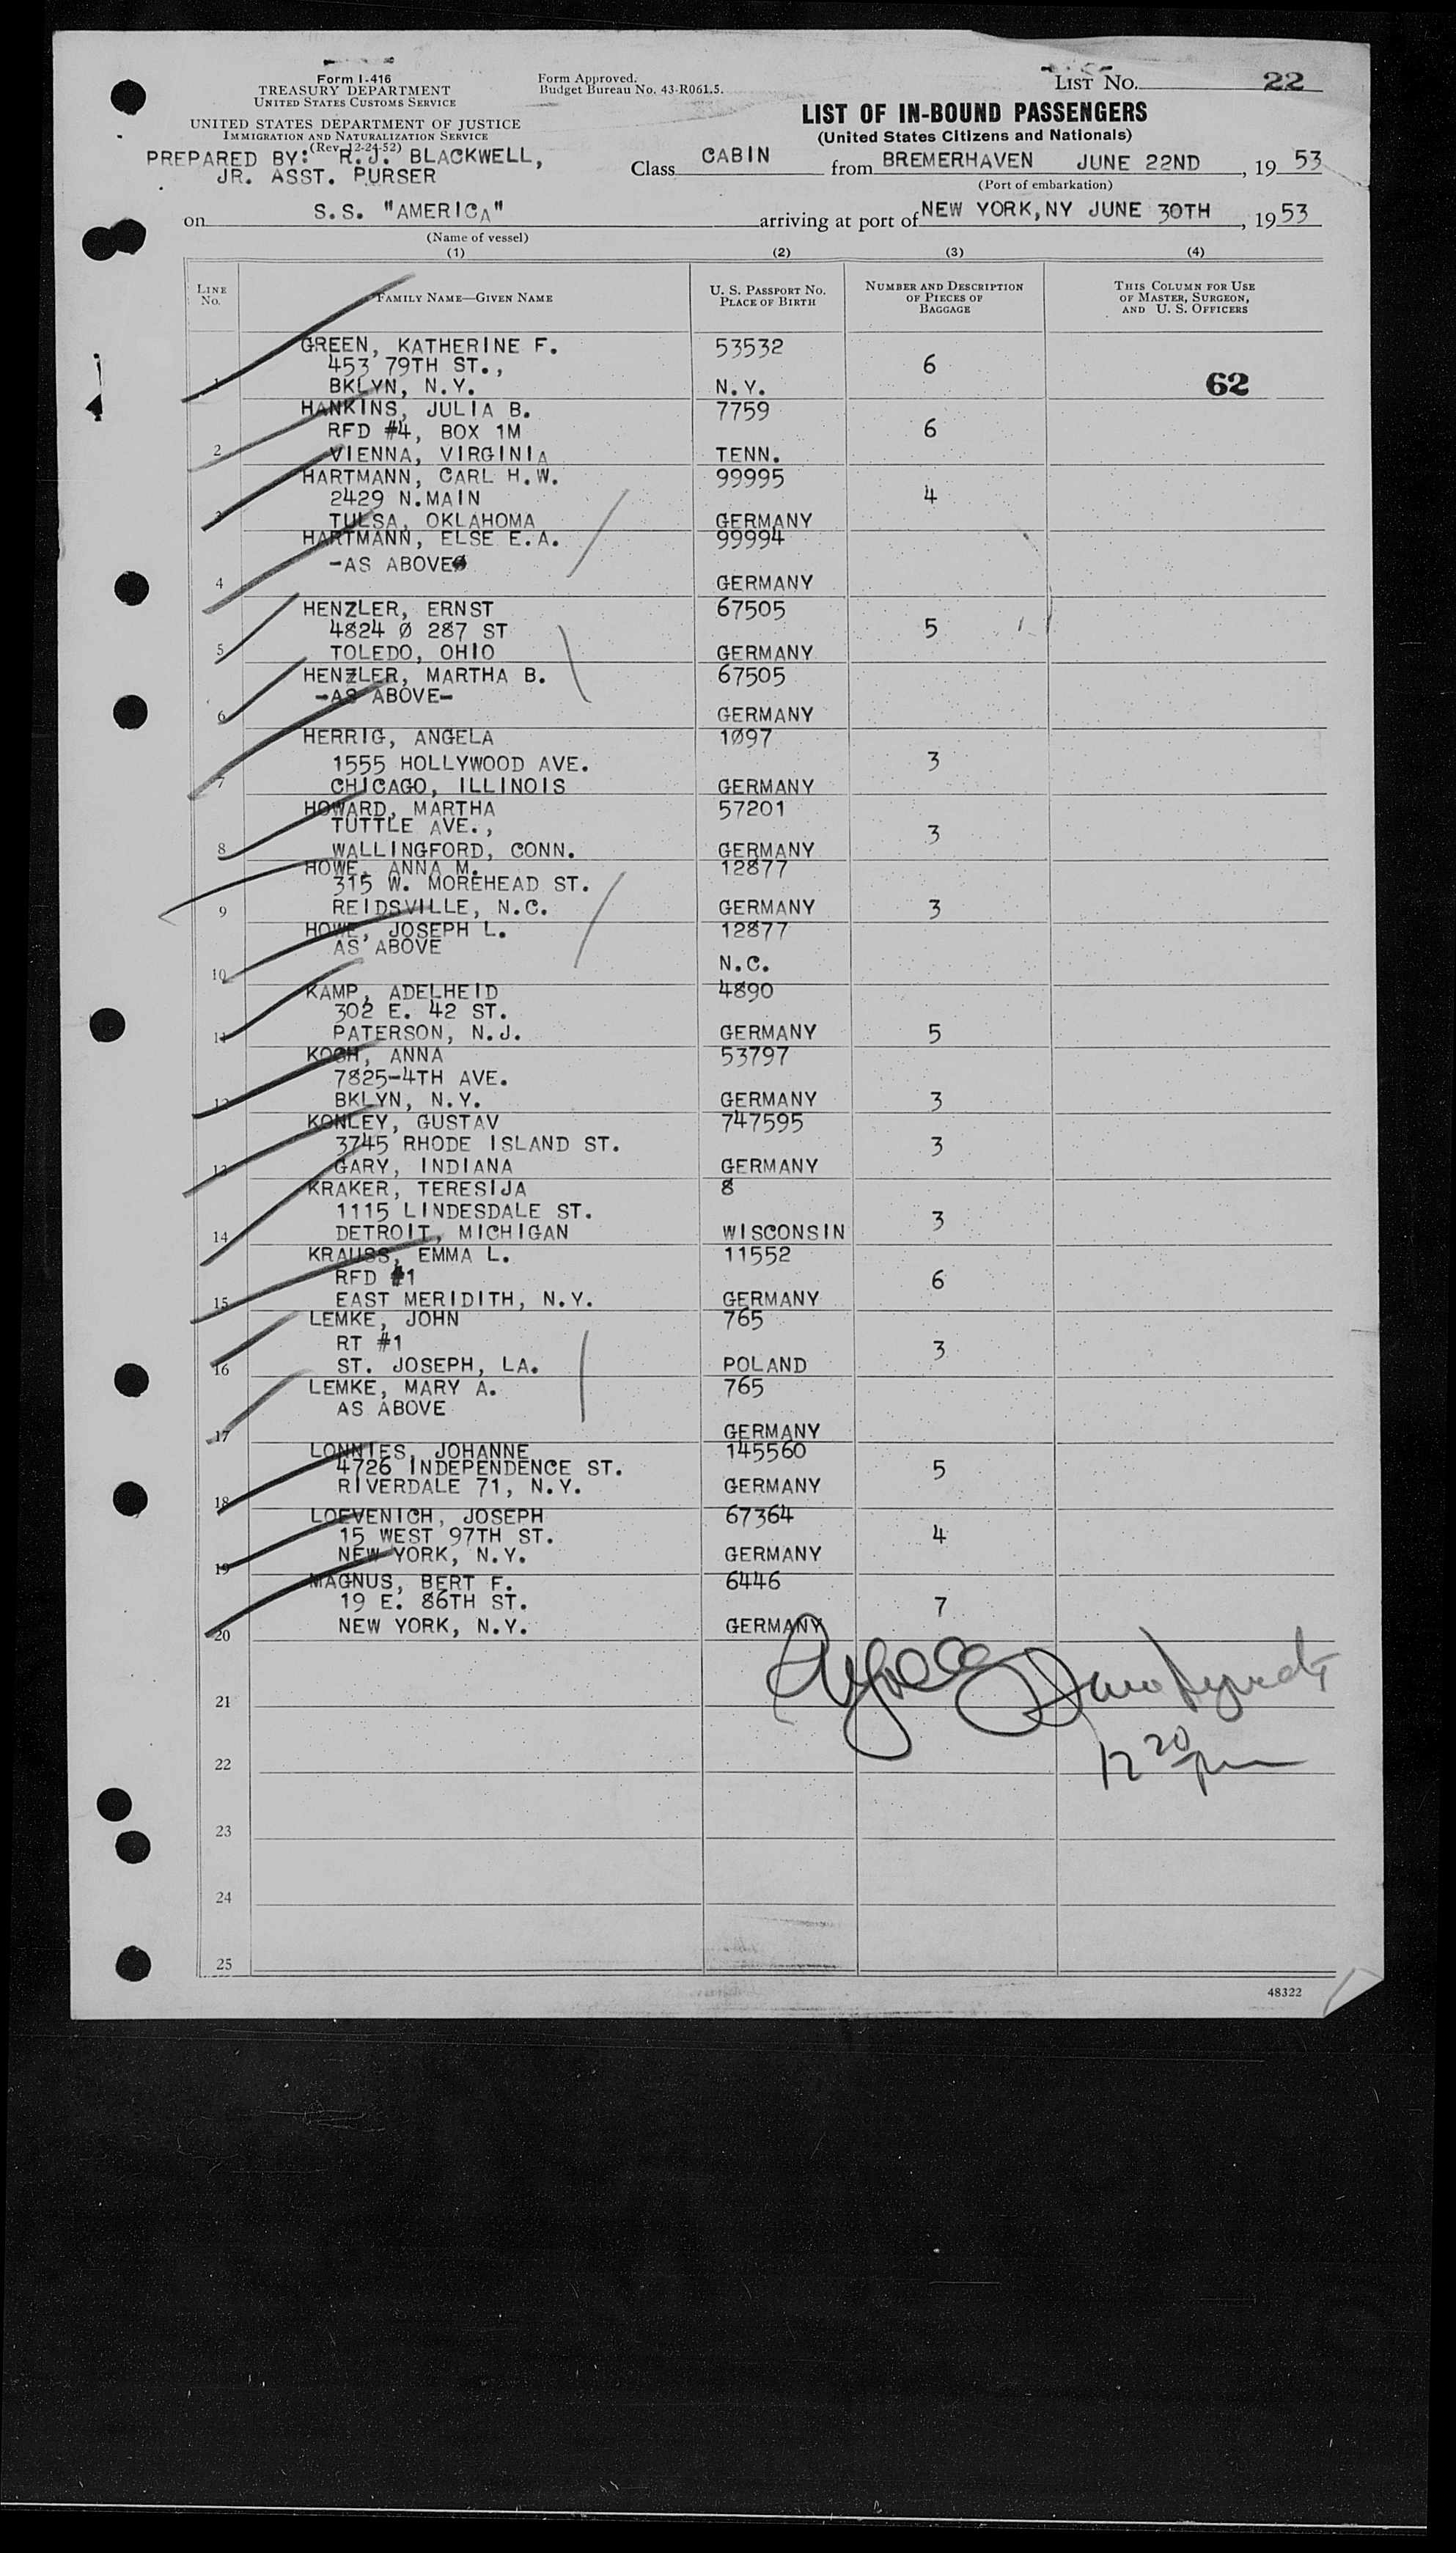 Form I-416
TREASURY DEPARTMENT
UNITED STATES CUSTOMS SERVICE
Form Approved.
Budget Bureau No. 43-R061.5.
LIST NO. 22
UNITED STATES DEPARTMENT OF JUSTICE
IMMIGRATION AND NATURALIZATION SERVICE
(Rev. 12-24-52)
LIST OF IN-BOUND PASSENGERS
(United States Citizens and Nationals)
PREPARED BY: R.J. BLACKWELL,
JR. ASST. PURSER
Class CABIN from BREMERHAVEN JUNE 22ND, 19 53
(Port of embarkation)
on S.S. "AMERICA" arriving at port of NEW YORK,NY JUNE 30TH, 19 53
(Name of vessel)
(1) (2) (3) (4)
LINE No. FAMILY NAME—GIVEN NAME U. S. PASSPORT NO. PLACE OF BIRTH NUMBER AND DESCRIPTION OF PIECES OF BAGGAGE THIS COLUMN FOR USE OF MASTER, SURGEON, AND U. S. OFFICERS
GREEN, KATHERINE F. 53532
453 79TH ST., 6
1 BKLYN, N.Y. N.Y. 62
HANKINS, JULIA B. 7759
RFD #4, BOX 1M 6
2 VIENNA, VIRGINIA TENN.
HARTMANN, CARL H.W. 99995
2429 N.MAIN 4
3 TULSA, OKLAHOMA GERMANY
HARTMANN, ELSE E.A. 99994
-AS ABOVE
4 GERMANY
HENZLER, ERNST 67505
4824 Ø 287 ST 5
5 TOLEDO, OHIO GERMANY
HENZLER, MARTHA B. 67505
-AS ABOVE-
6 GERMANY
HERRIG, ANGELA 1097
1555 HOLLYWOOD AVE. 3
7 CHICAGO, ILLINOIS GERMANY
HOWARD, MARTHA 57201
TUTTLE AVE., 3
8 WALLINGFORD, CONN. GERMANY
HOWE, ANNA M. 12877
315 W. MOREHEAD ST.
9 REIDSVILLE, N.C. GERMANY 3
HOWE, JOSEPH L. 12877
AS ABOVE
10 N.C.
KAMP, ADELHEID 4890
302 E. 42 ST.
11 PATERSON, N.J. GERMANY 5
KOCH, ANNA 53797
7825-4TH AVE.
12 BKLYN, N.Y. GERMANY 3
KONLEY, GUSTAV 747595
3745 RHODE ISLAND ST. 3
13 GARY, INDIANA GERMANY
KRAKER, TERESIJA 8
1115 LINDESDALE ST. 3
14 DETROIT, MICHIGAN WISCONSIN
KRAUSS, EMMA L. 11552
RFD #1 6
15 EAST MERIDITH, N.Y. GERMANY
LEMKE, JOHN 765
RT #1 3
16 ST. JOSEPH, LA. POLAND
LEMKE, MARY A. 765
AS ABOVE
17 GERMANY
LONNIES, JOHANNE 145560
4726 INDEPENDENCE ST. 5
18 RIVERDALE 71, N.Y. GERMANY
LOEVENICH, JOSEPH 67364
15 WEST 97TH ST. 4
19 NEW YORK, N.Y. GERMANY
MAGNUS, BERT F. 6446
19 E. 86TH ST. 7
20 NEW YORK, N.Y. GERMANY
21
22 12 20 pm
23
24
25
48322